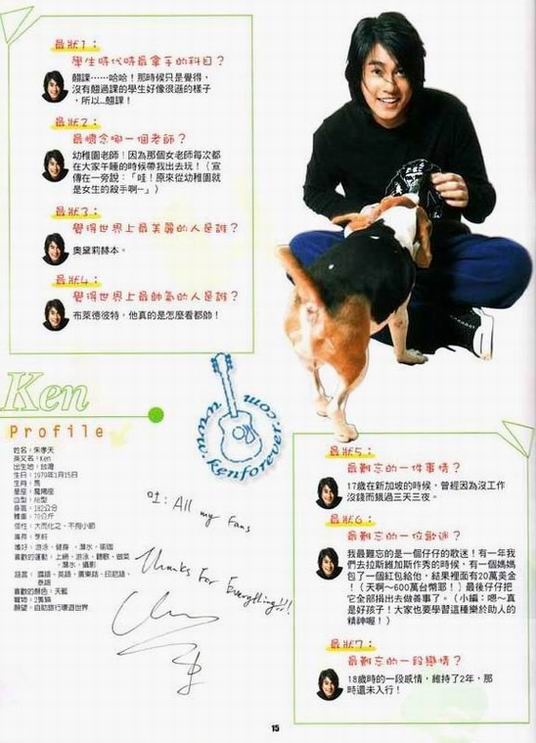 最狀1：
學生時代時最拿手的科目？
翹課……哈哈！那時候只是覺得，
沒有翹過課的學生好像很遜的樣子
，所以…翹課！
最狀2：
最懷念哪一個老師？
幼稚園老師！因為那個女老師每次都
在大家午睡的時候帶我出去玩！（宣
傳在一旁說：「哇！原來從幼稚園就
是女生的殺手啊~」）
最狀3：
覺得世界上最美麗的人是誰？
奧黛莉赫本。
最狀4：
覺得世界上最帥氣的人是誰？
布萊德彼特，他真的是怎麼看都帥！
Ken
Profile
姓名：朱孝天
英文名：Ken
出生地：台灣
生日：1979年1月15日
生肖：馬
星座：魔羯座
血型：AB型
身高：182公分
體重：70公斤
個性：大而化之、不拘小節
嗜好：游泳、健身、潛水、瑜珈
喜歡的運動：上網、游泳、聽歌、做菜
、潛水、攝影
語言：國語、英語、廣東話、印尼語、
泰語
喜歡的顏色：天藍
寵物：2隻貓
願望：自助旅行環遊世界
www.kenforever.com
All my Fans
Thanks For Everything!!!
最狀5：
最難忘的一件事情？
17歲在新加坡的時候，曾經因為沒工作
沒錢而餓過三天三夜。
最狀6：
最難忘的一位歌迷？
我最難忘的是一個仔仔的歌迷！有一年我
們去拉斯維加斯作秀的時候，有一個媽媽
包了一個紅包給他，結果裡面有20萬美金
！（天啊～600萬台幣耶！）最後仔仔把
它全部捐出去做善事了。（小編：嗯～真
是好孩子！大家也要學習這種樂於助人的
精神喔！）
最狀7：
最難忘的一段戀情？
18歲時的一段感情，維持了2年，那
時還未入行！
15